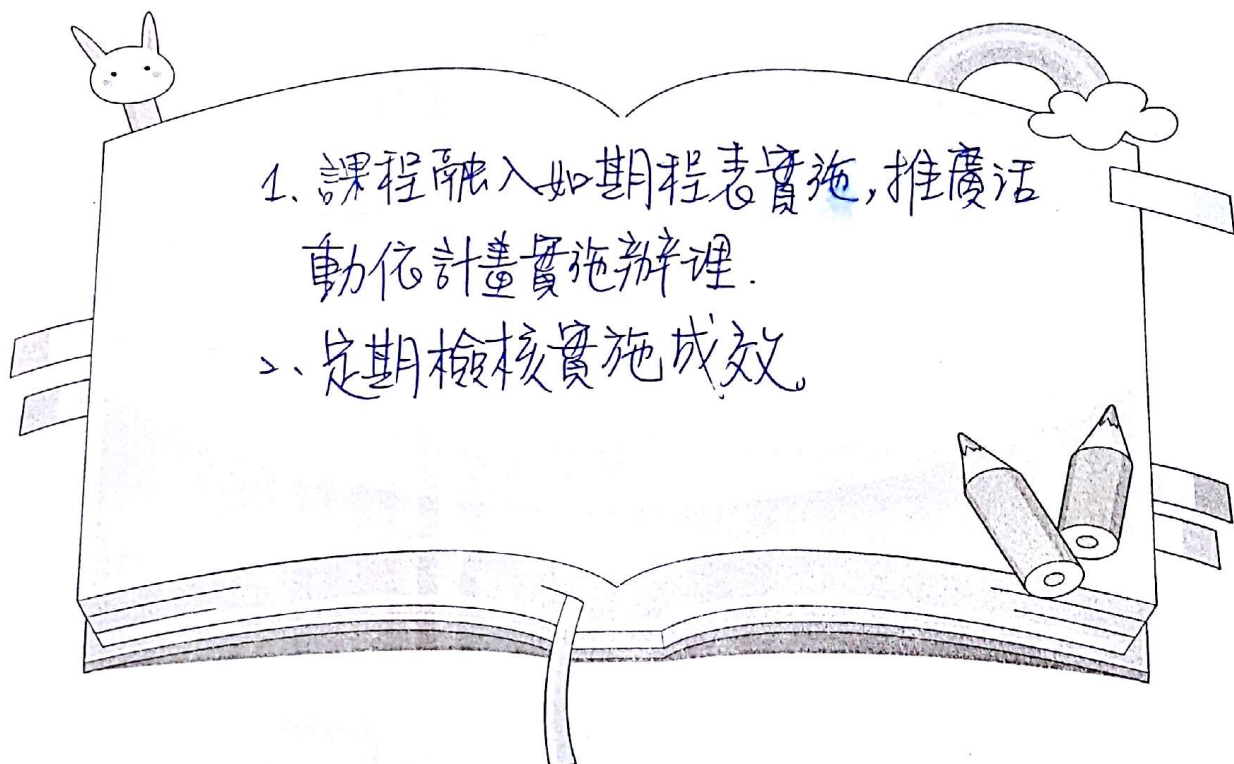 1、課程融入如期程表實施,推廣活
動依計畫實施辦理.
2、定期檢核實施成效。